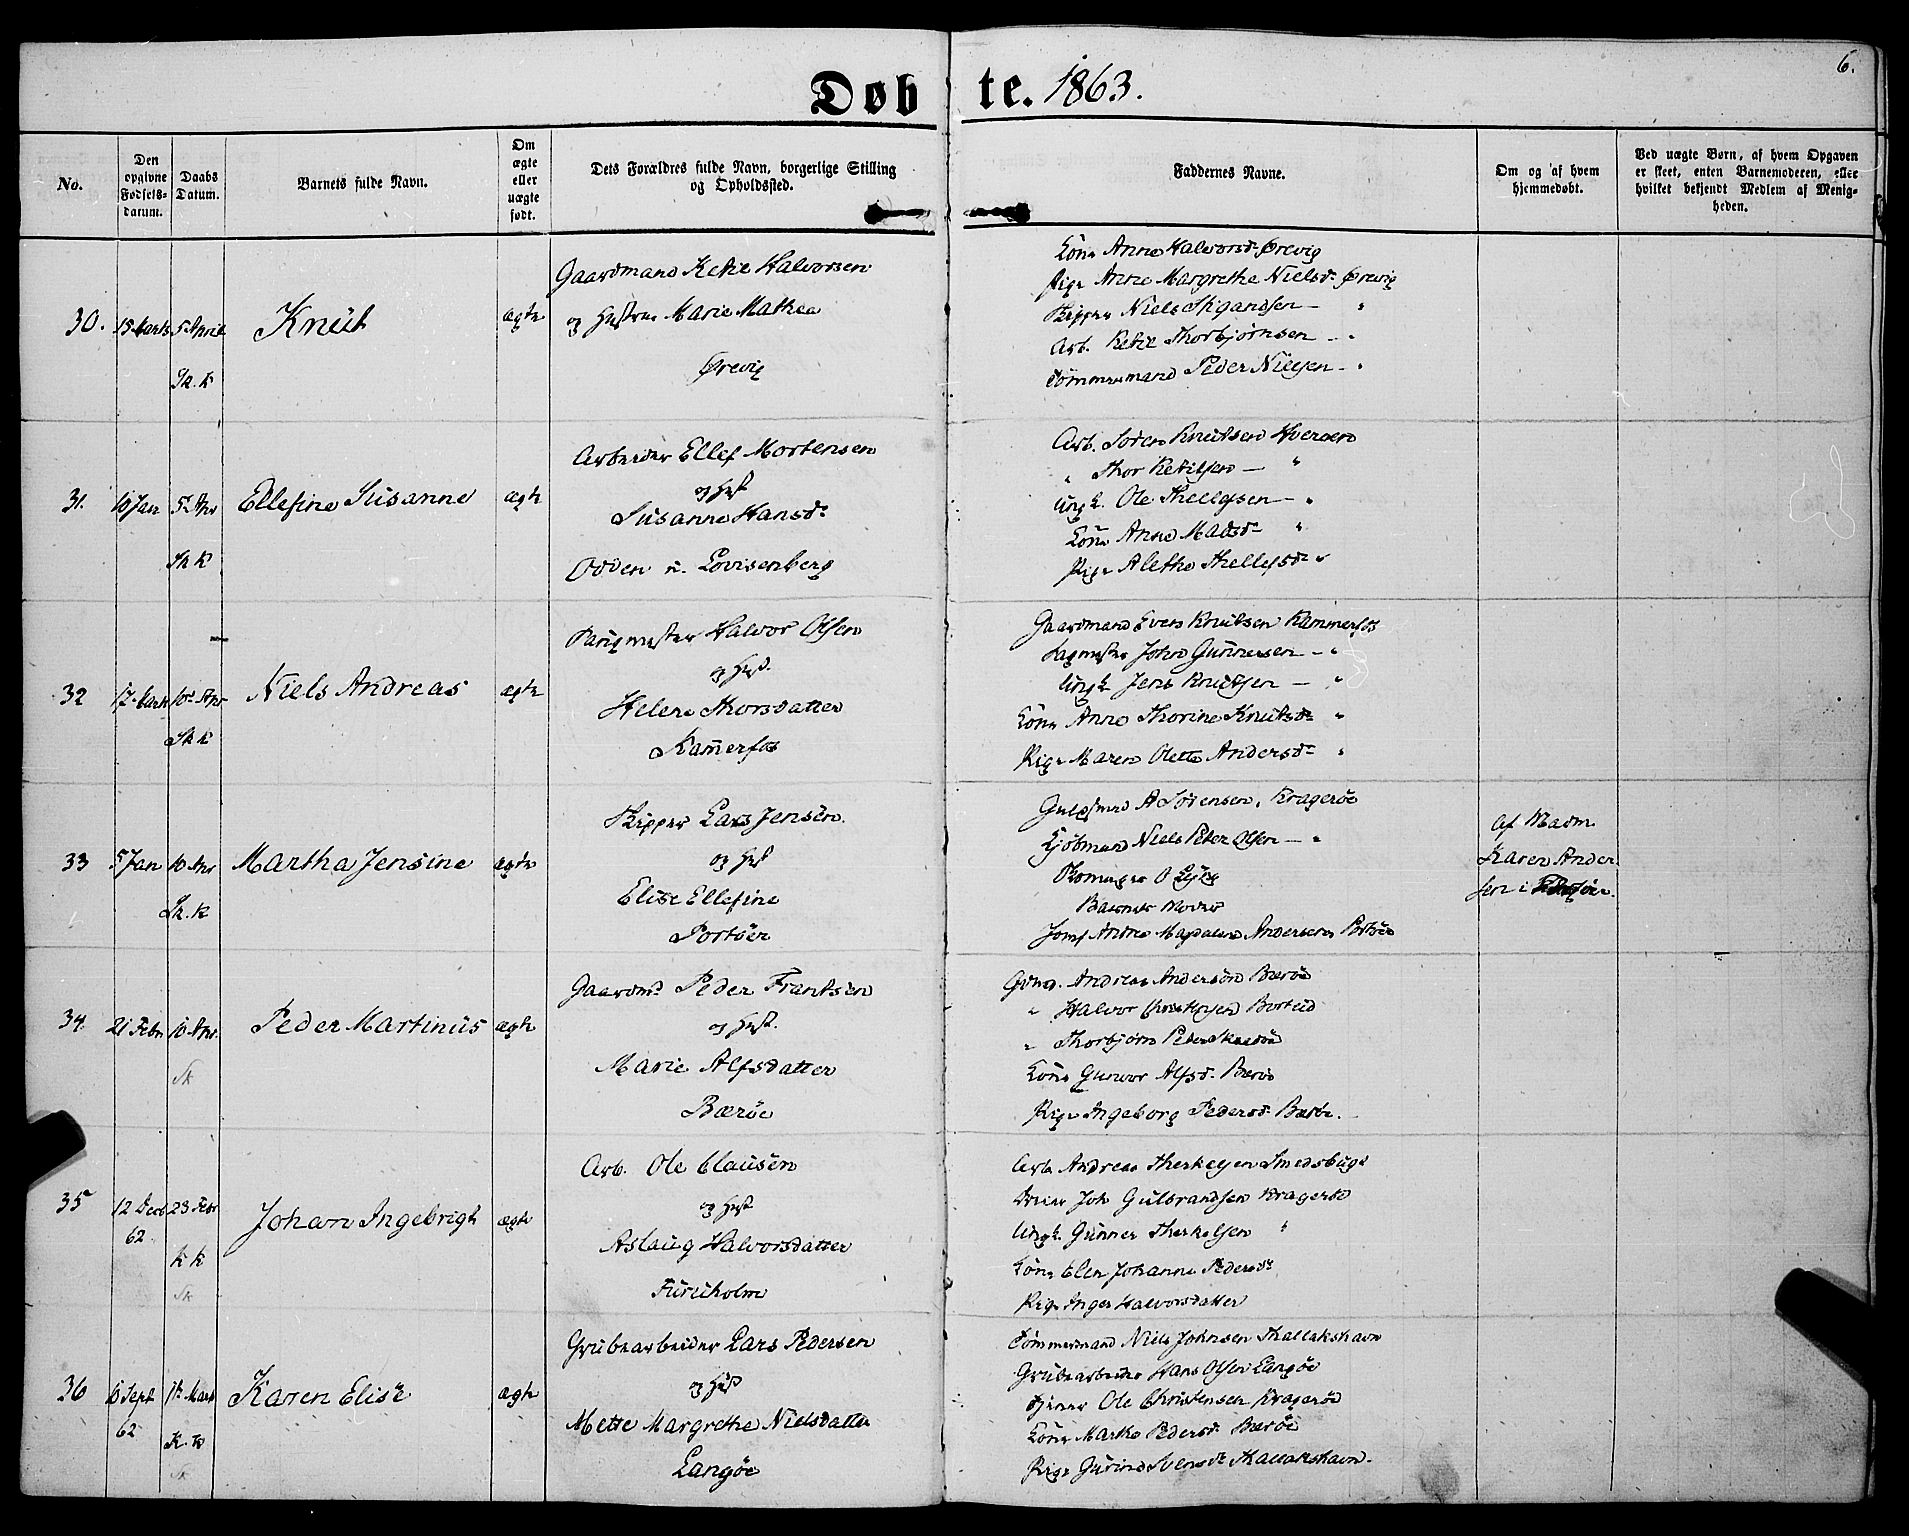 6.
Døbte. 1863.
No.
Den opgivne Fødsels-datum.
Daabs Datum.
Barnets fulde Navn.
Om ægte eller uægte født.
Dets Forældres fulde Navn, borgerlige Stilling og Opholdssted.
Faddernes Navne.
Om og af hvem hjemmedøbt.
Ved uægte Børn, af hvem Opgaven er skeet, enten Barnemoderen, eller hvilket bekjendt Medlem af Menigheden.
30. 5 April Sk. K
Knut
ægte
Gaardmand Ketil Halvorsen
og Hustrue Marie Mathea
Ørevig
Kone Anne Halvorsd. Ørevig
Pige Anne Margrethe Nielsd. Ørevig
Skipper Niels Stigandsen — "
Arb. Ketil Thorbjørnsen — "
Tømmermand Peder Nielsen — "
31. 10 Jan 5 Apr Sk K
Ellefine Susanne
ægte
Arbeider Ellef Mortensen
og Hust
Susanne Hansd.
Odden u. Lovisenberg
Arb. Søren Knutsen
" Thor Ketilsen — "
Ungk. Ole Thellefsen — "
Kone Anne Madsd. "
Pige Alethe Thellefsd. "
32 17 Marts 10 Apr Sk K
Niels Andreas
ægte
Halvor Olsen
og Hust.
Helene Thorsdatter
Kammerfos
Gaardmand Evers Knutsen Kammerfos
Sagmester John Gunnersen — "
Ungk. Jens Knutsen — "
Kone Anne Thorine Knutsd. "
Pige Maren Olette Andersd. "
33 5 Jan 10 Apr Sk. K
Martha Jensine
ægte
Skipper Lars Jensen
og Hust
Elise Ellefine
Portøer
A Sørensen, Kragerøe
Kjøbmand Niels Peter Olsen — "
Barnets Moder
Jomf Andrea Magdalene Andersen Portøer
Af Madm
Karen Ander-
sen i
34. 21 Febr 10 Apr. Sk
Peder Martinus
ægte
Gaardmd Peder Frantsen
og Hust.
Marie Alfsdatter
Bærøe
Gdmd. Andreas Andersen Bærøe
" Halvor
" Thorbjørn
Kone Gunvor Alfsd. Bærøe
Pige Ingeborg Pedersd. Bærøe.
35 12 Decb 62 23 Febr K K Sk
Johan Ingebrigt
ægte
Arb. Ole Clausen
og Hust
Aslaug Halvorsdatter
Furuholm
Arb. Andreas Therkelsen Smedsbugt
Joh Gulbrandsen Kragerøe
Ungk. Gunner Therkelsen "
Kone Elen Johanne Pedersd.
Pige Inger Halvorsdatter
36 Sept 62 1 Marts K. K Sk
Karen Elise
ægte
Grubearbeider Lars Pedersen
og Hust
Mette Margrethe Nielsdatter
Langøe
Tømmermand Niels Johnsen Thallakshavn
Grubearbeider Hans Olsen Langøe
Ole Christensen Kragerøe
Kone Marthe Pedersd. Bærøe
Pige Gurine Svensd. Thallakshavn.